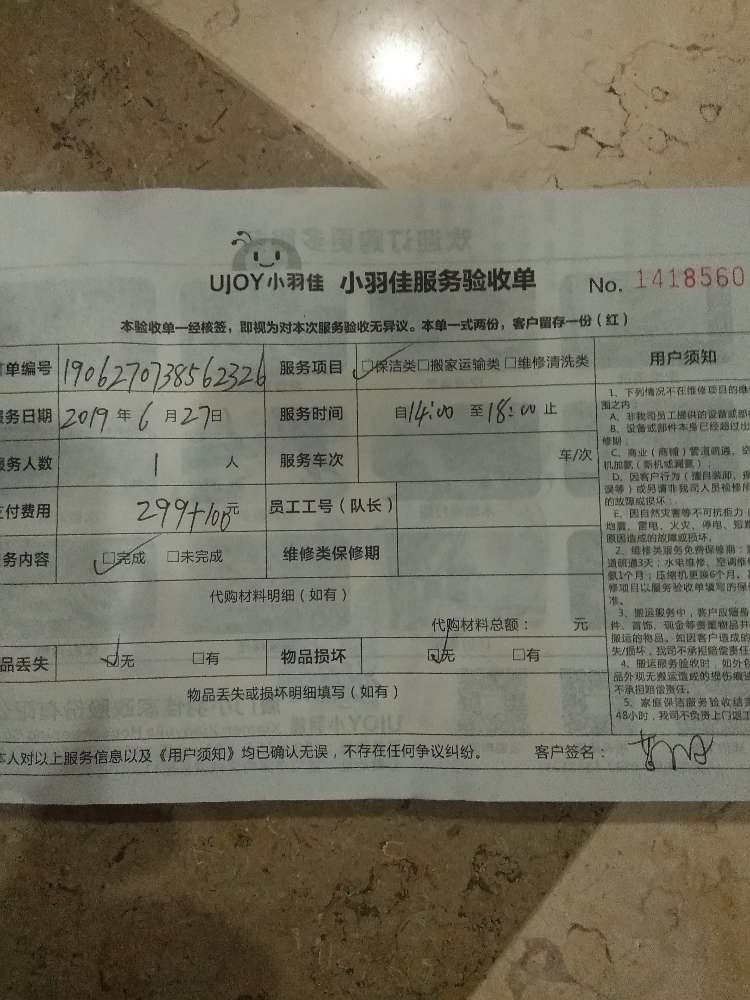 UJOY小羽佳 小羽佳服务验收单 No. 1418560
本验收单一经核签，即视为对本次服务验收无异议。本单一式两份，客户留存一份（红）
单编号 1906270738562326 服务项目 ☑保洁类□搬家运输类□维修清洗类 用户须知
务日期 2019年6月27日 服务时间 自14:00至18:00止
务人数 1人 服务车次 车/次
付费用 299+100元 员工工号（队长）
务内容 ☑完成 □未完成 维修类保修期
代购材料明细（如有）
代购材料总额： 元
品丢失 ☑无 □有 物品损坏 ☑无 □有
物品丢失或损坏明细填写（如有）
本人对以上服务信息以及《用户须知》均已确认无误，不存在任何争议纠纷。 客户签名：
1、下列情况不在维修项目的维
围之内：
A、非我司员工提供的设备或部
B、设备或部件本身已经超过出
修期；
C、商业（商铺）管道疏通、空
机加氨（新机或漏氨）；
D、因客户行为（擅自装卸、
误等）或另请非我司人员检修
的故障或损坏；
E、因自然灾害等不可抗拒力
地震、雷电、火灾、停电、短路
原因造成的故障或损坏。
2、维修类服务免费保修期：
道疏通3天；水电维修、空调维
氨1个月；压缩机更换6个月。
修项目以服务验收单填写的保
准。
3、搬运服务中，客户应赔
件、首饰、现金等贵重物品
搬运的物品。如因客户造成的
失/损坏，我司不承担赔偿责任
4、搬运服务验收时，如外
品外观无搬运造成的损伤痕
不承担赔偿责任。
5、家庭保洁服务验收结
48小时，我司不负责上门返工